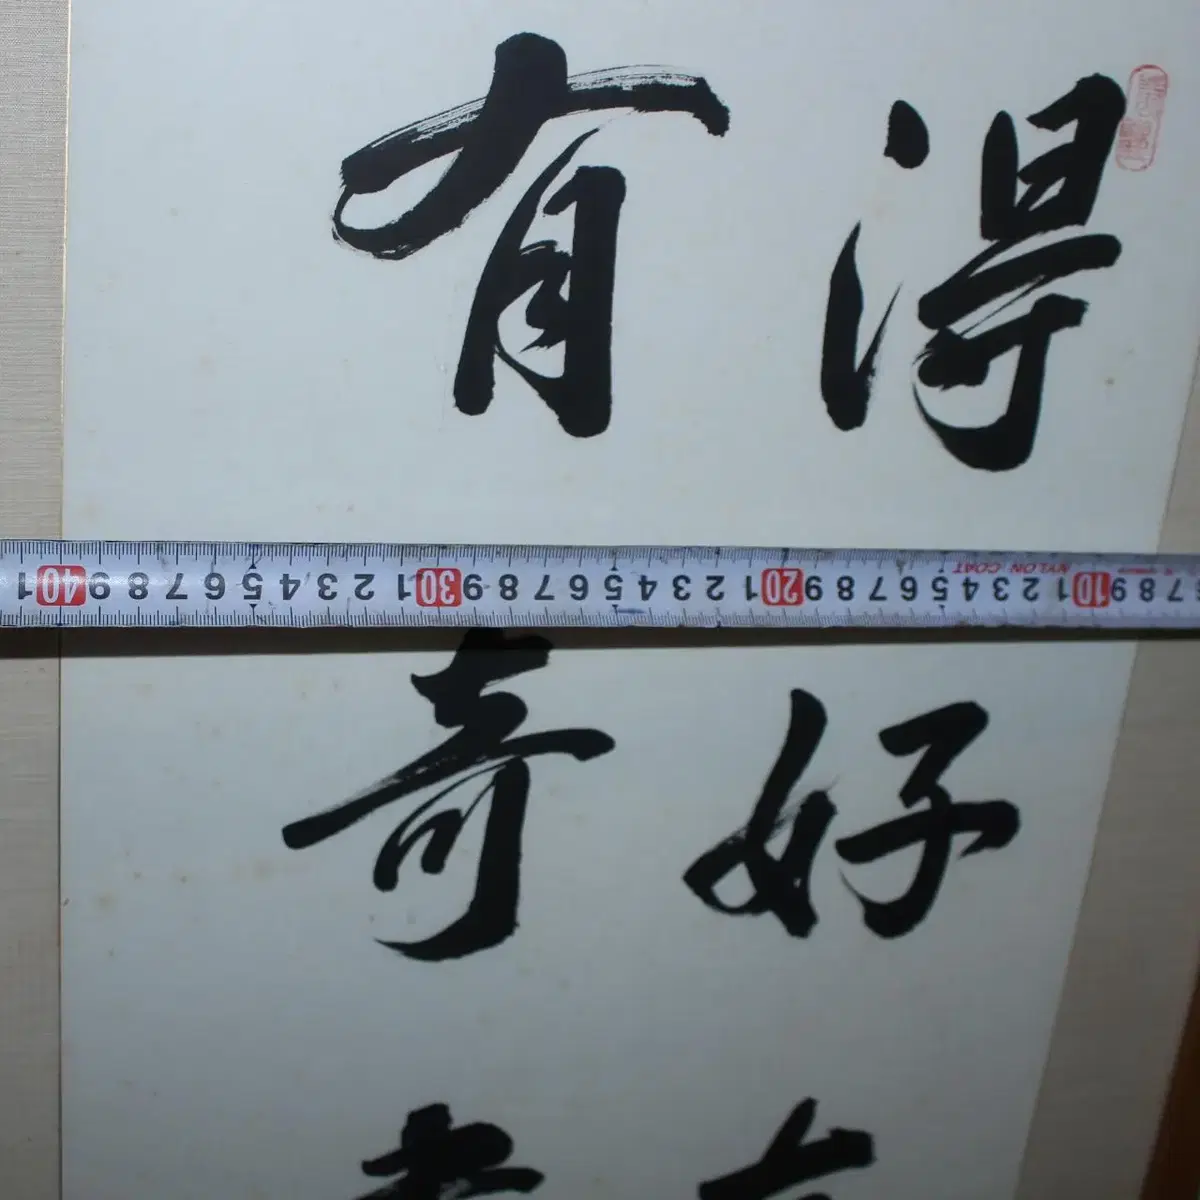 得好友
有奇書
1 40 9 8 7 6 5 4 3 2 1 30 9 8 7 6 5 4 3 2 1 20 9 8 7 6 5 4 3 2 1 10 9 8 7
NYLON COAT